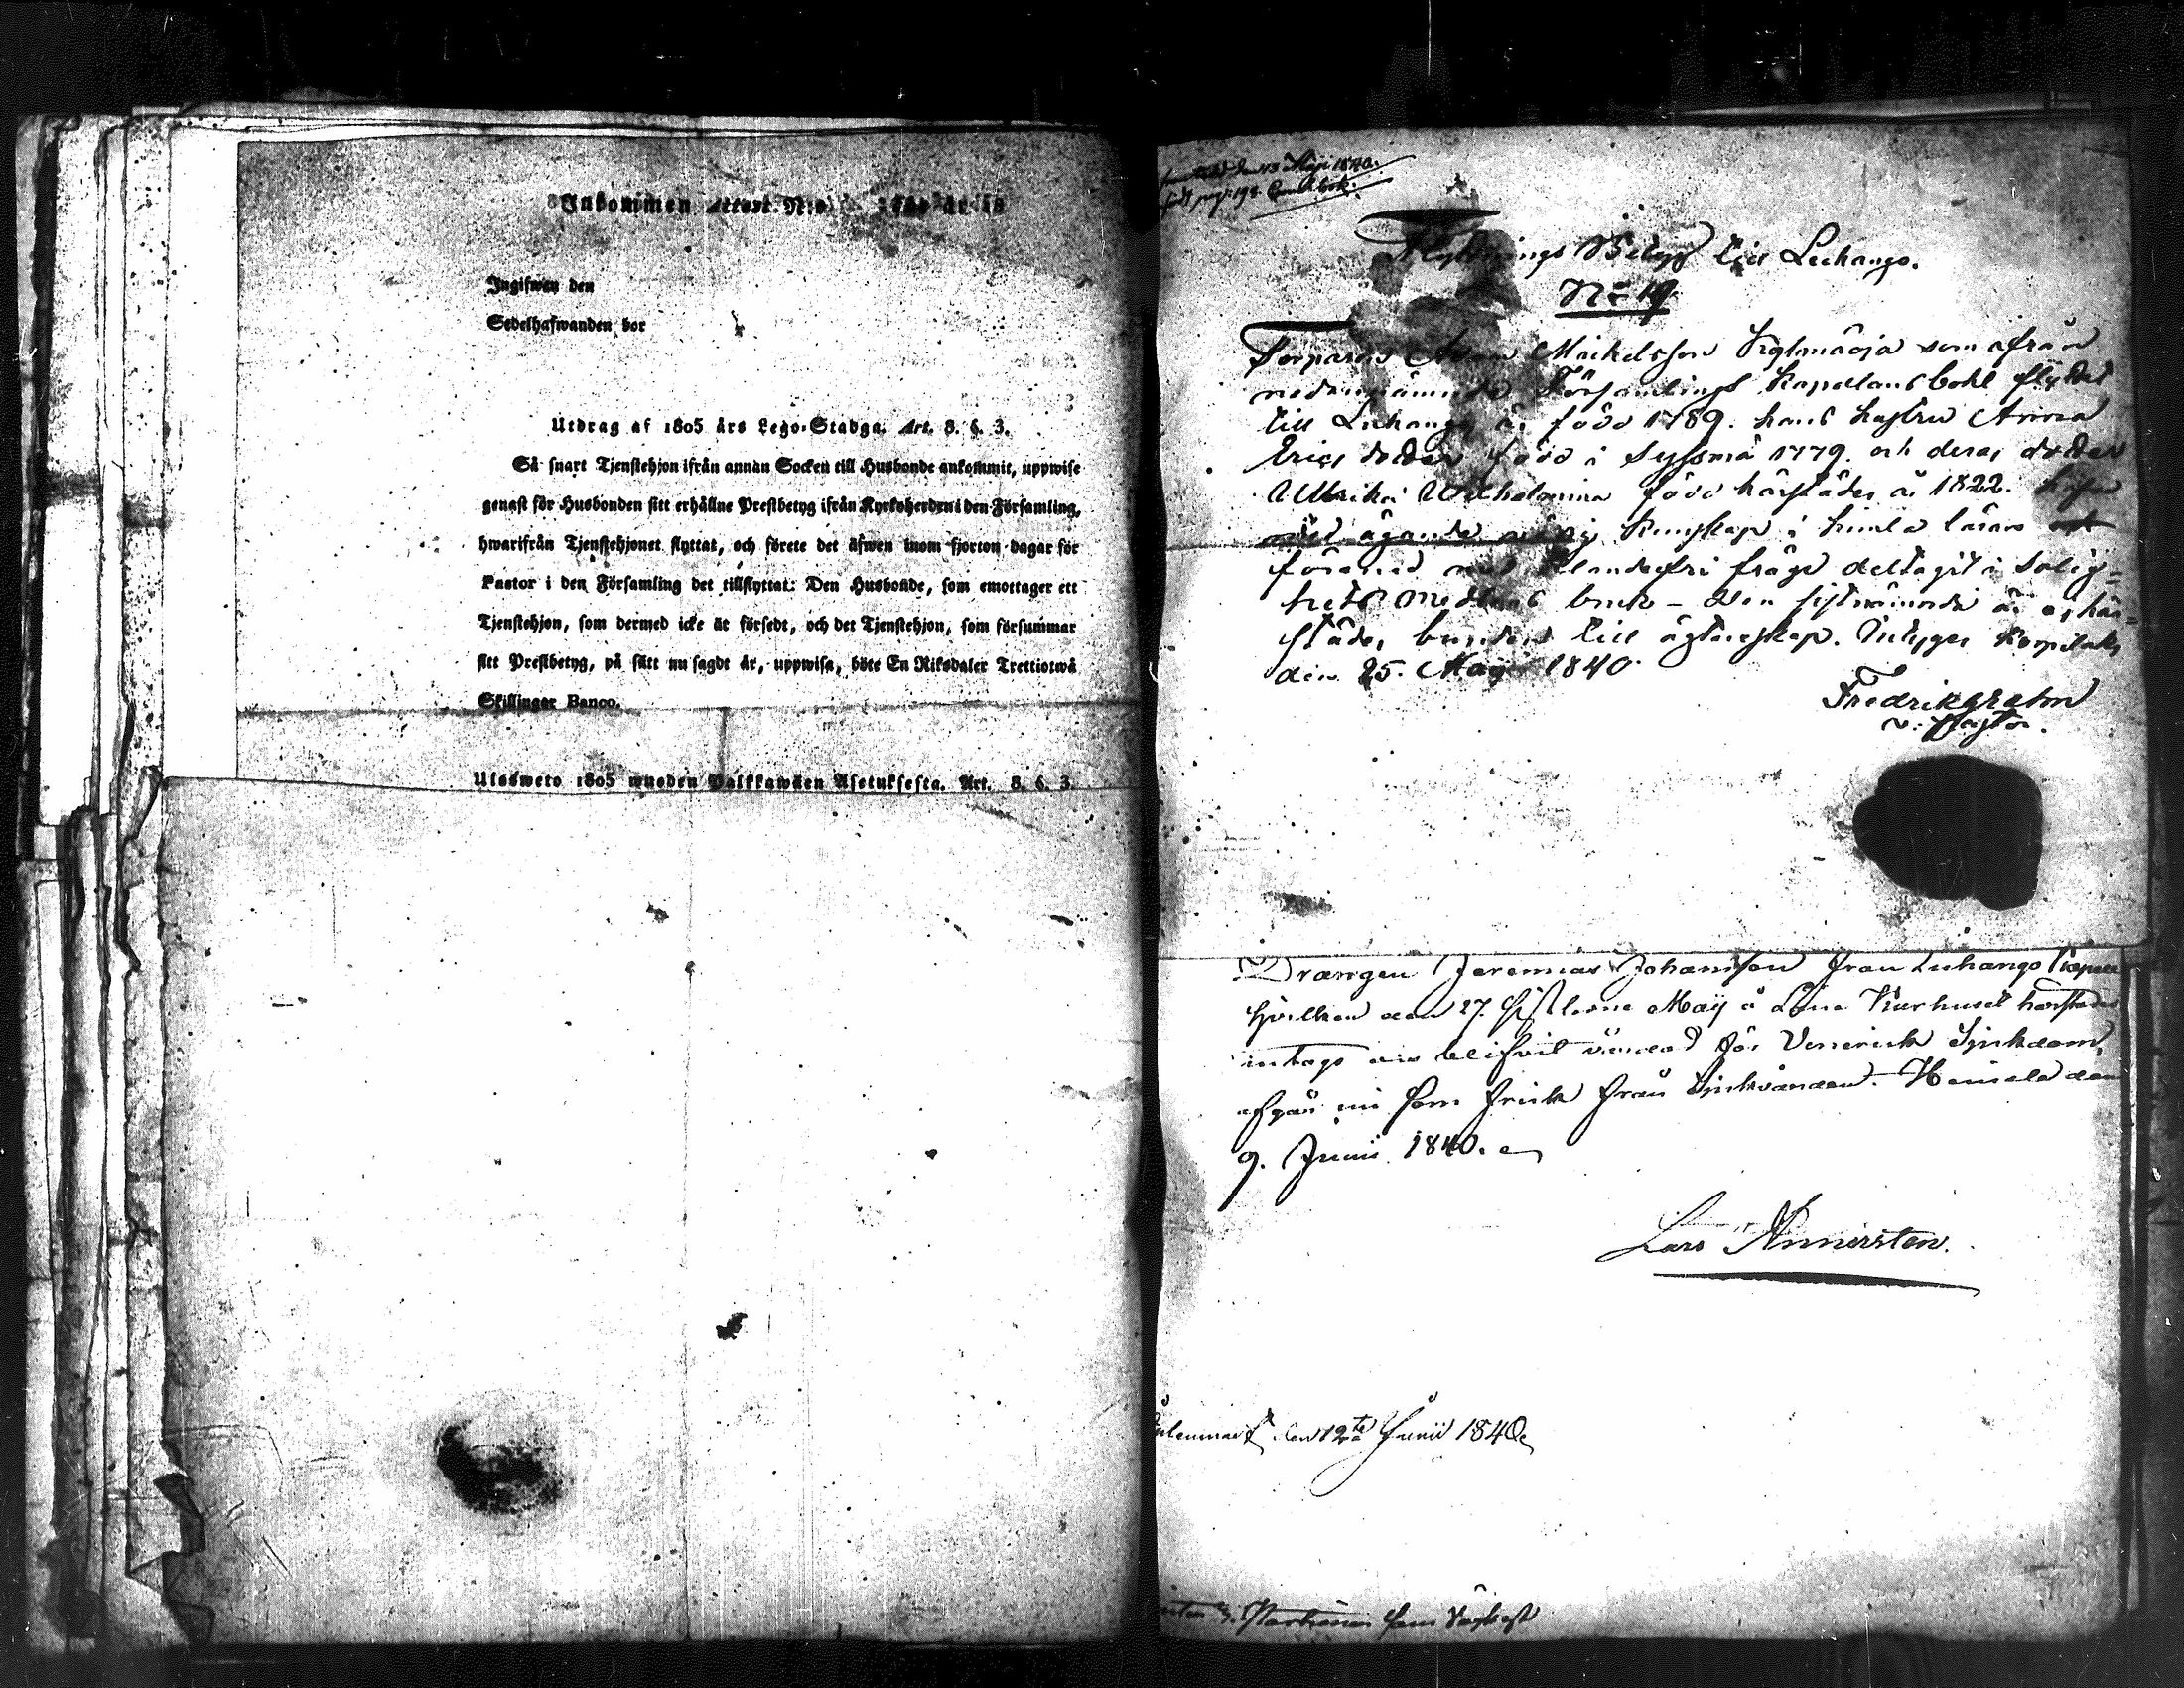 Inkommen Attest. N:o för år 18
Ingifwen den
Sedelhafwanden bor
Utdrag af 1805 års Lego-Stadga. Art. 8. §. 3.
Så snart Tjenstehjon ifrån annan Socken till Husbonde ankommit, uppwise
genast för Husbonden sitt erhållne Prestbetyg ifrån Kyrkoherden i den Församling,
hwarifrån Tjenstehjonet flyttat, och förete det äfwen inom fjorton dagar för
Pastor i den Församling det tillflyttat: Den Husbonde, som emottager ett
Tjenstehjon, som dermed icke är försedt, och det Tjenstehjon, som försummar
sitt Prestbetyg, på sätt nu sagdt är, uppwisa, böte En Riksdaler Trettiotwå
Skillingar Banco.
Ulosweto 1805 wuoden Palkkawäen Asetuksesta. Art. 8. §. 3.
1840.
pag: 198
Flyttnings Betyg till Luhango.
No 19.
Torparen Michelsson som ifrån
nedannämnde Församlings Kapellans bohl flyttat
till Luhango är född 1789. hans hustru Anna
Erics dotter född i Sysmä 1779. och deras dotter
Ulrika Wilhelmina född härstädes år 1822.
kunskap i hinla läran
med frägd deltagit i Salig-
hets Medlens bruk - Den sistnämnda är ej här-
städes bunden till ägtenskap. Intygar
den 25. Maji 1840.
Fredrik Grahn
v. Pastor.
Drängen Jeremias Johansson från Luhango Kapell
hvilken den 27. sistledne Maij å Läne Kurhuset härstädes
intags och blifvit vårdad för Venerisk Sjukdom,
afgår nu som frisk från Sjukvården. Heinola den
9. Junii 1840.
Lars
den 12te Junii 1840